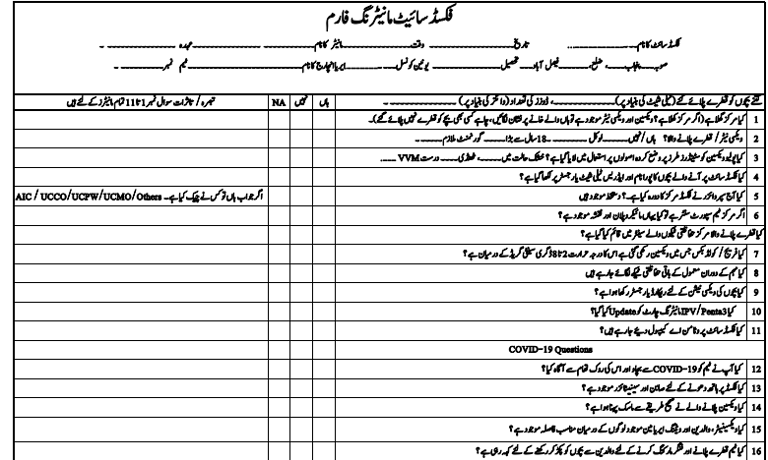 فکسڈ سائیٹ مانیٹرنگ فارم
فکسڈ سائٹ کا نام۔۔۔۔۔۔۔۔۔۔۔۔ تاریخ۔۔۔۔۔۔۔۔۔۔۔۔ وقت۔۔۔۔۔۔۔۔۔۔۔۔ مانیٹر کا نام۔۔۔۔۔۔۔۔۔۔۔۔ عہدہ ۔۔۔۔۔۔۔۔۔۔۔۔
صوبہ۔پنجاب۔۔۔ ضلع۔ فیصل آباد۔۔ تحصیل ۔۔۔۔۔۔۔۔۔ یونین کونسل ۔۔۔۔۔۔۔۔۔ ایریا انچارج کا نام۔۔۔۔۔۔۔۔۔ ٹیم نمبر۔۔۔۔۔۔
کتنے بچوں کو قطرے پلائے گئے (ٹیلی شیٹ کی بنیاد پر) ۔۔۔۔۔۔۔۔۔، ڈوزز کی تعداد (وائلز کی بنیاد پر) ۔۔۔۔۔۔۔۔۔ ہاں نہیں NA تبصرہ / تاثرات سوال نمبر 1 تا 11 تمام مانیٹرز کے لئے ہیں
1 کیا مرکز کھلا ہے (اگر مرکز کھلا ہے؟ ویکسین اور ویکسی نیٹر موجود ہے تو ہاں والے خانے پر نشان لگائیں، چاہے کسی بھی بچے کو قطرے نہیں پلائے گئے)۔
2 ویکسی نیٹر / قطرے پلانے والا؟ ہاں / نہیں۔۔۔۔۔۔ لوکل ۔۔۔۔۔۔ 18 سال سے بڑا۔۔۔۔۔۔ گورنمنٹ ملازم ۔۔۔۔۔۔
3 کیا پولیو ویکسین کو سٹینڈرز طرز پر وضع کردہ اصولوں پر استعمال میں لایا گیا ہے؟ خشک حالت میں ۔۔۔۔۔، ٹھنڈی۔۔۔۔۔ درست VVM ۔۔۔۔۔
4 کیا فکسڈ سائٹ پر آنے والے بچوں کا پورا نام اور ایڈریس ٹیلی شیٹ یا رجسٹر پر لکھا گیا ہے؟
5 کیا آج سپروائزر نے فکسڈ مرکز کا دورہ کیا ہے۔؟ دستخط موجود ہیں اگر جواب ہاں تو کس نے چیک کیا ہے۔ AIC / UCCO/UCPW/UCMO/Others
6 اگر مرکز ٹیم سپورٹ سنٹر ہے تو کیا یہاں مائیکروپلان اور نقشہ موجود ہے؟
کیا قطرے پلانے والا مرکز حفاظتی ٹیکوں والے سینٹر میں قائم کیا گیا ہے؟
7 کیا فریج / کولڈ بکس جس میں ویکسین رکھی گئی ہے اس کا درجہ حرارت 2 تا 8 ڈگری سینٹی گریڈ کے درمیان ہے؟
8 کیا مہم کے دوران معمول کے باقی حفاظتی ٹیکے لگائے جارہے ہیں
9 کیا بچوں کی ویکسی نیشن کے لئے ریکارڈ یا رجسٹر رکھا ہوا ہے؟
10 کیا IPV/Penta3 مانیٹرنگ چارٹ کو Update کیا گیا؟
11 کیا فکسڈ سائٹ پر وٹامن اے کیپسول دیئے جارہے ہیں؟
COVID-19 Questions
12 کیا آپ نے ٹیم کو COVID-19 سے بچاو اور اس کی روک تھام سے آگاہ کیا؟
13 کیا فکسڈ پر ہاتھ دھونے کے لئے صابن اور سینیٹائزر موجود ہے؟
14 کیا ویکسین پلانے والے نے صحیح طریقے سے ماسک پہنا ہوا ہے؟
15 کیا ویکسینیٹر، والدین اور ویٹنگ ایریا میں موجود لوگوں کے درمیان مناسب فاصلہ موجود ہے؟
16 کیا ٹیم قطرے پلانے اور فنگر مارکنگ کرنے کے لئے والدین سے بچوں کو پکڑ کر رکھنے کے لئے کہہ رہی ہے؟